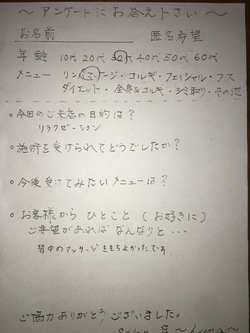 ～アンケートにお答え下さい～
お名前 匿名希望
年齢 10代 20代 30代 40代 50代 60代
メニュー リンパマッサージ・コルギ・フェイシャル・フス
ダイエット・全身&コルギ・シミ取り・その他
○今回のご来店の目的は?
リラクゼーション
○施術を受けられてどうでしたか?
○今後受けてみたいメニューは?
○お客様から ひとこと (お好きに)
ご希望があればなんなりと…
背中のマッサージきもちよかったです
ご協力ありがとうございました。
Salon 月～Luna～